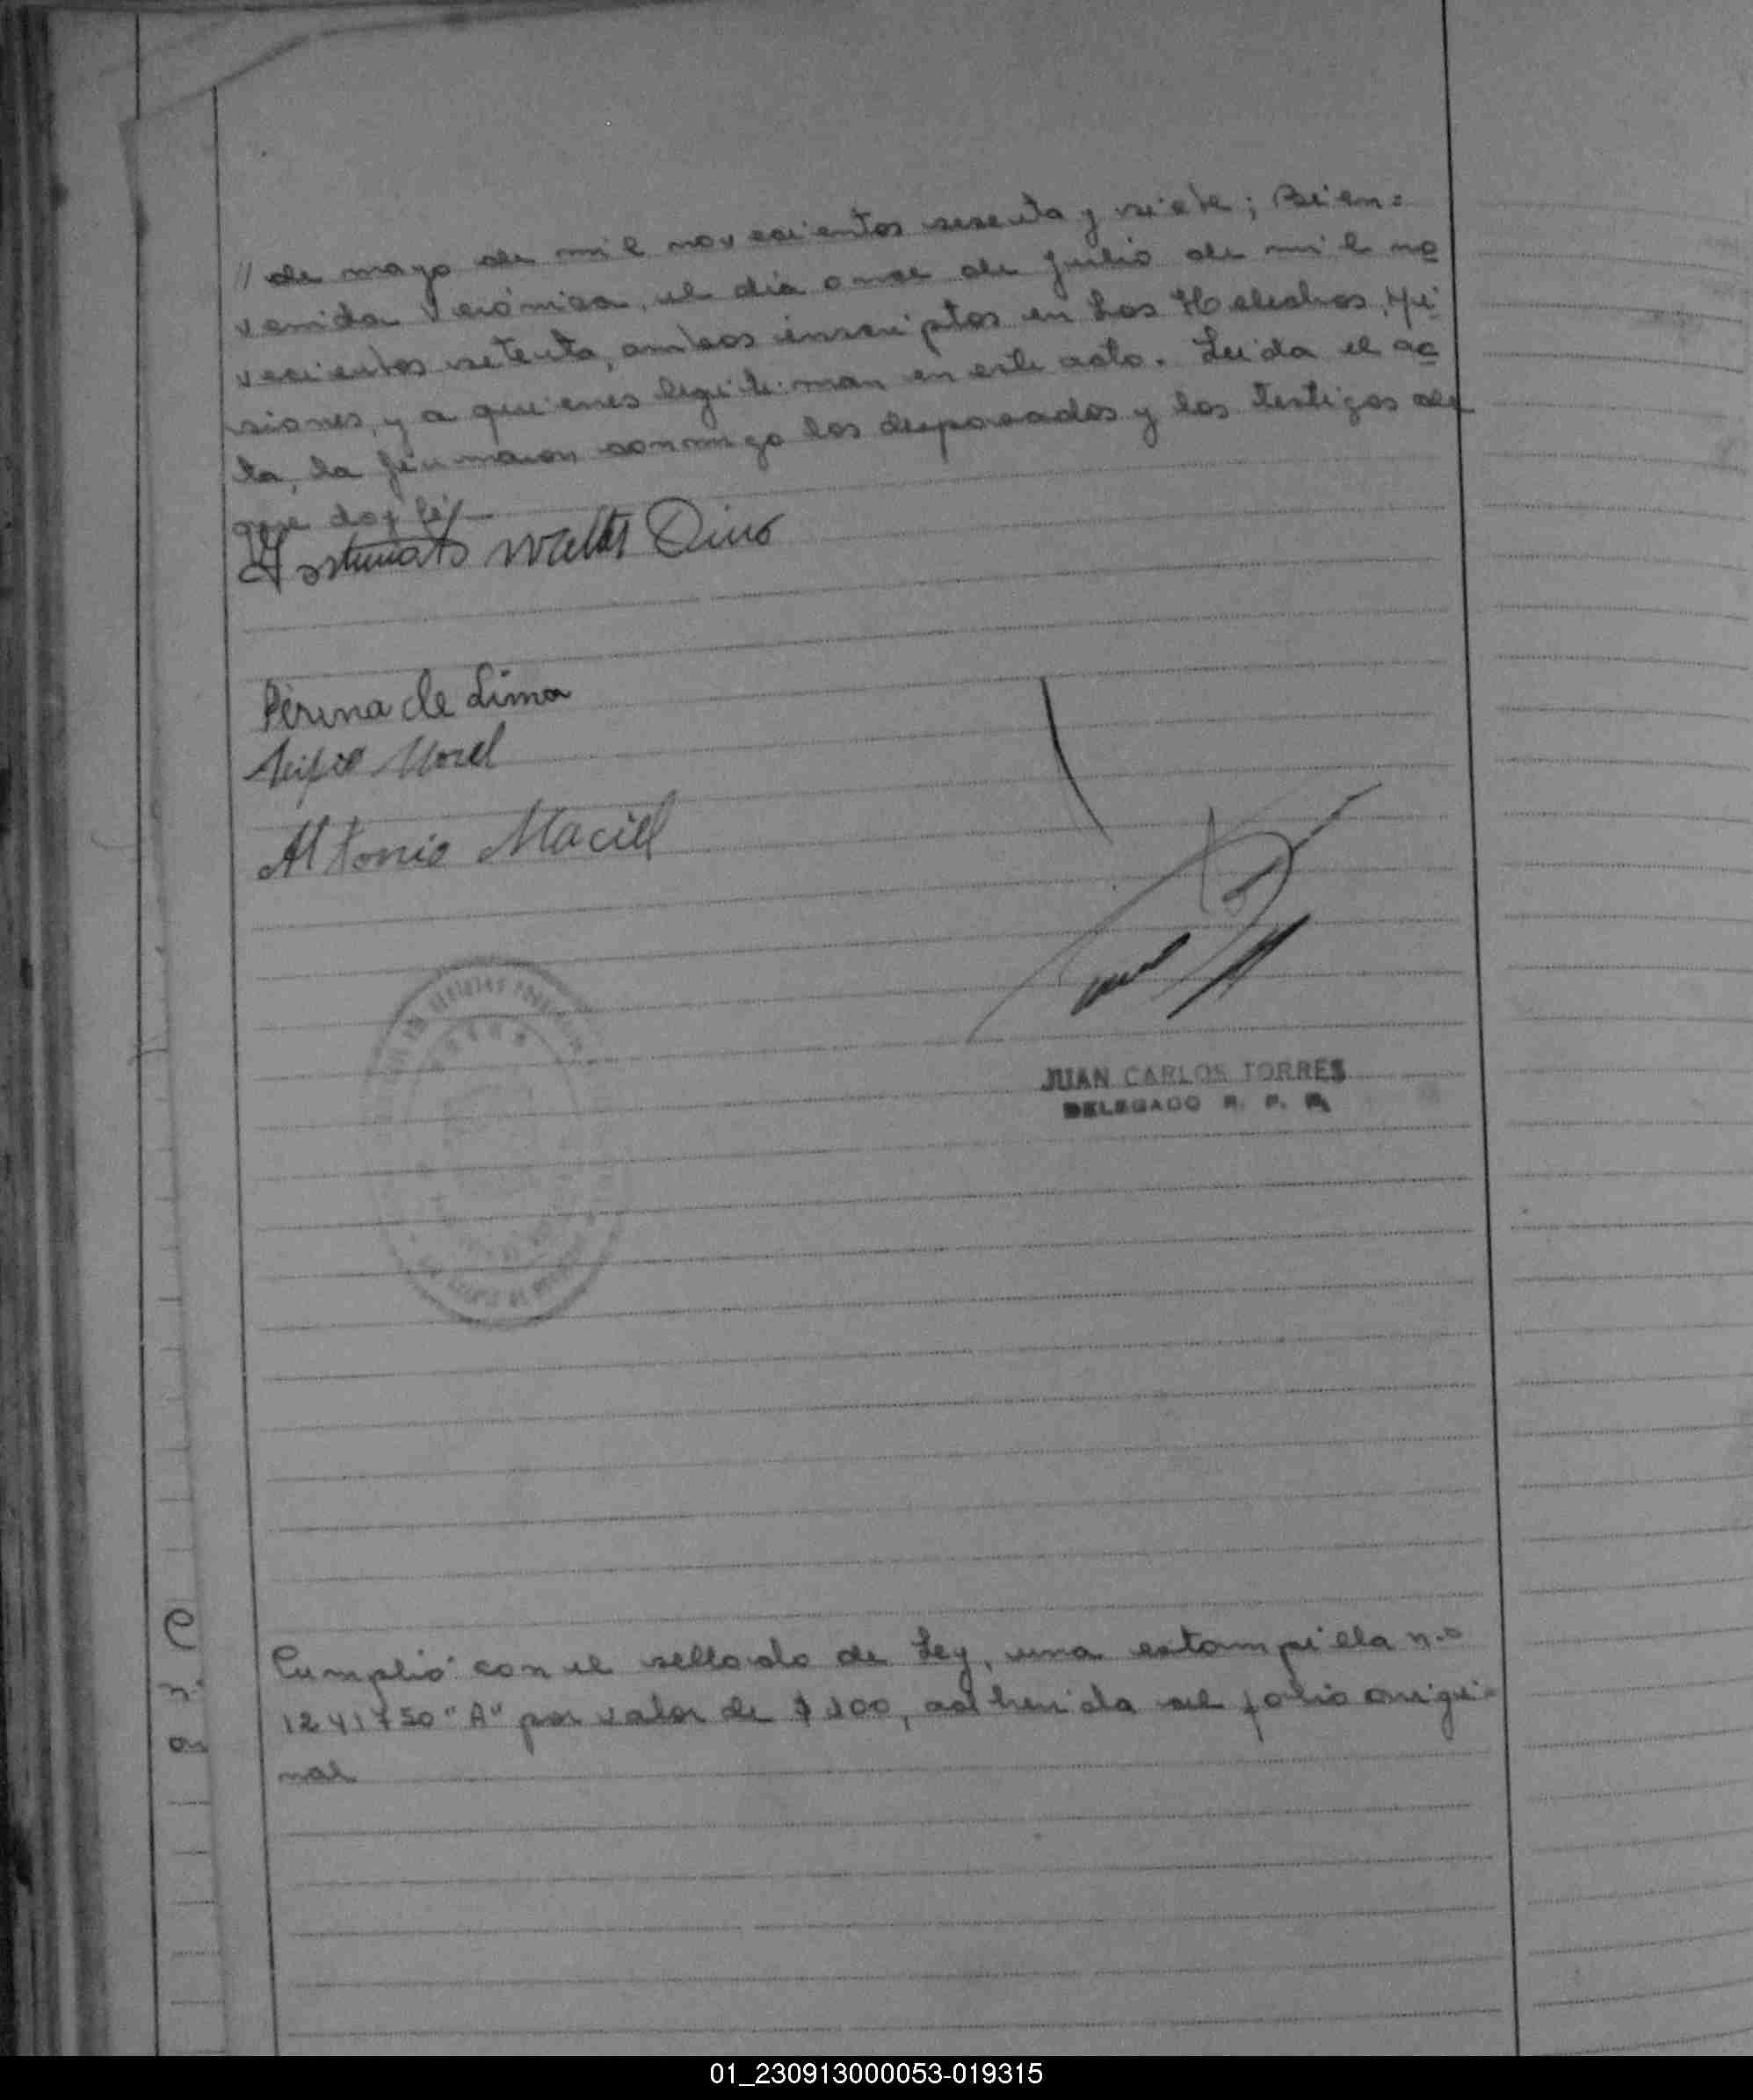 // de mayo de mil novecientos sesenta y siete; Bien=
venida Verónica, el día once de julio de mil no
vecientos setenta, ambos inscriptos en Los Helechos, Mi
siones, y a quienes legitiman en este acto. Leída el ac
ta, la firmaron conmigo los desposados y los testigos de
que doy fé/-
Fortunato Walter Dino
Perina de Lima
Morel
Antonio Maciel
JUAN CARLOS TORRES
DELEGADO R. P. P.
Cumplió con el sellado de Ley, una estampilla n.o
1241750 "A" por valor de $ 100, adherida al folio origi=
nal
01_230913000053-019315